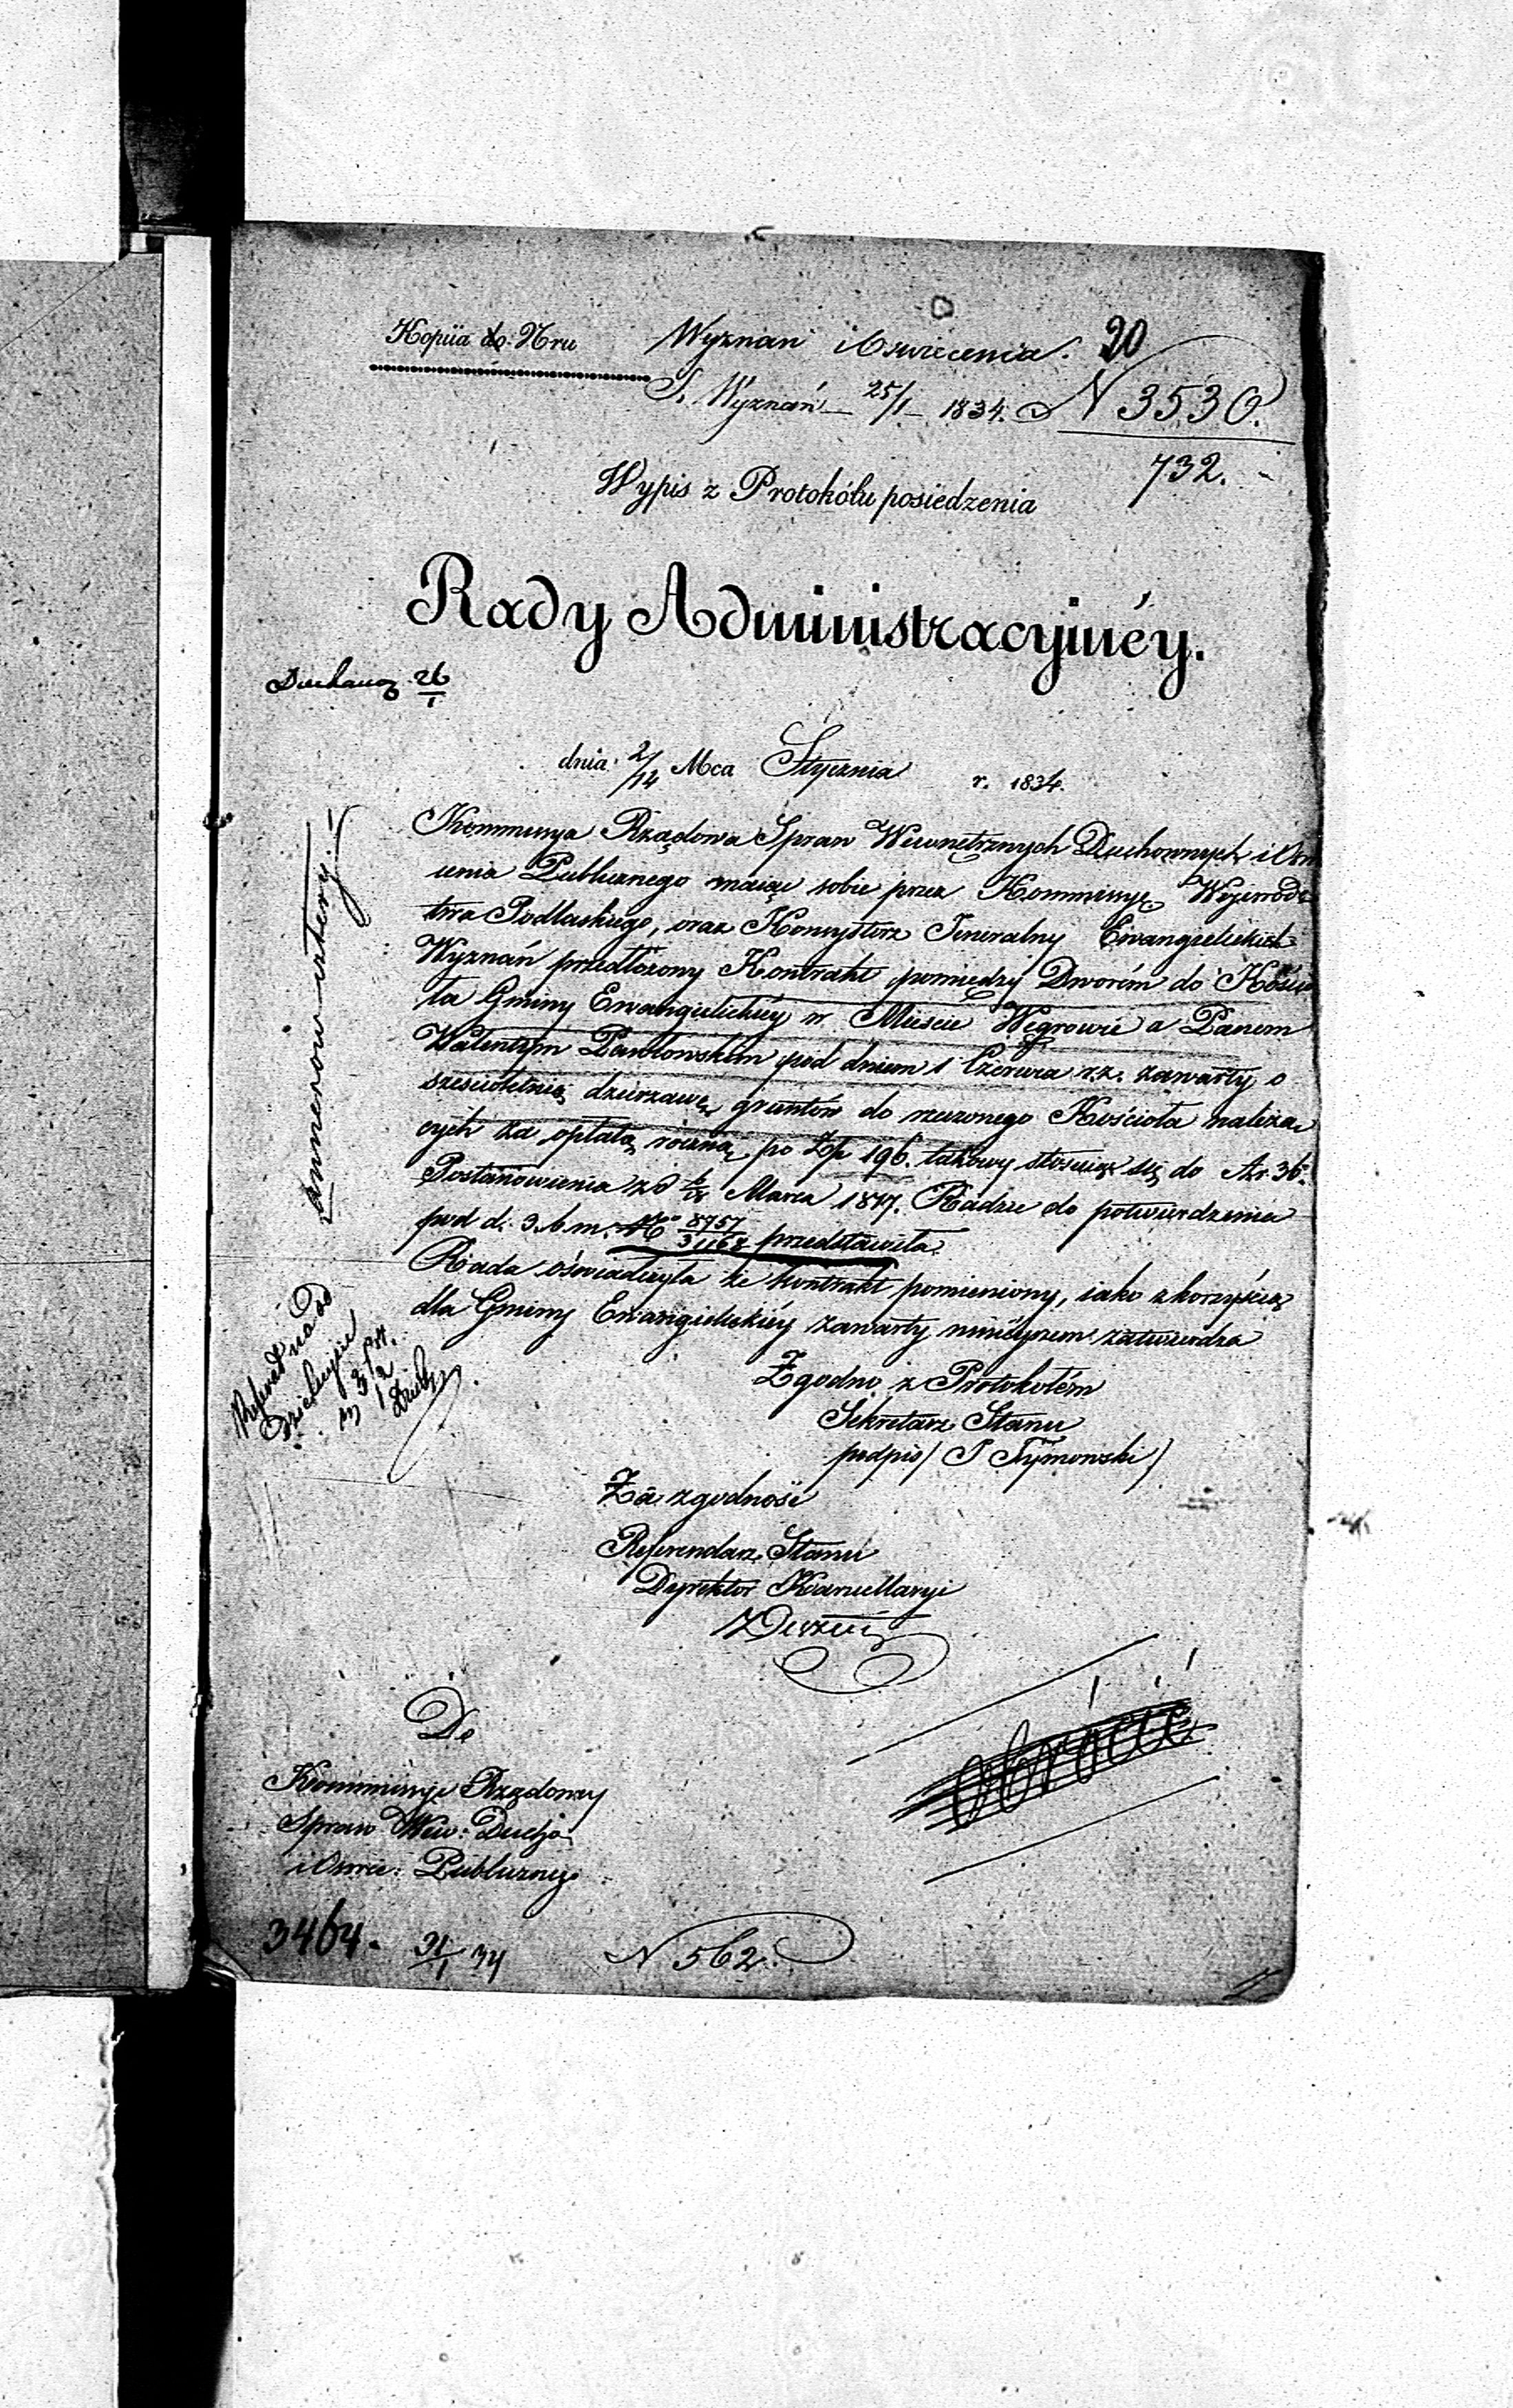 Kopiia do Nru Wyznań i Oswiecenia. 20
S. Wyznań 25/1 1834. N 3530.
732.
Wypis z Protokółu posiedzenia
Rady Administracyinéy.
26/1
dnia 2/14 Mca Stycznia r. 1834.
Kommissya Rządowa Spraw Wewnętrznych Duchownych i Oświ
cenia Publicznego maiąc sobie przez Kommissyę Wojewodz
twa Podlaskiego, oraz Konsystorz Jeneralny Ewangelickich
Wyznań przedłożony Kontrakt pomiędzy Dworém do Kościo
ła Gminy Ewangielickiéy w Mieście Węgrowie a Panem
Walentym Pawłowskim pod dniem 1 Czerwca r.z. zawarty o
sześcioletnią dzierzawę gruntów do rzeczonego Kościoła należą
cych za opłatą roczną po Złp 196. takowy stosuiąc się do Ar. 36
Postanowienia z d 6/18 Marca 1817. Radzie do potwierdzenia
pod d. 3. b m. No 8757 przedstawiła.
Rada oświadczyła że kontrakt pomieniony, iako z korzyścią
dla Gminy Ewangielickiéy zawarty ninieyszem zatwierdza
Zgodno z Protokołém
Sekretarz Stanu
podpis/ J Tymowski)
Za zgodność
Referendarz Stanu
Dyrektor Kancellaryi
Do
Kommissyi Rządowey
Spraw Wew: Ducho
i Oswie: Publiczneg
obrócić
3464. 31/1 34 N 562.